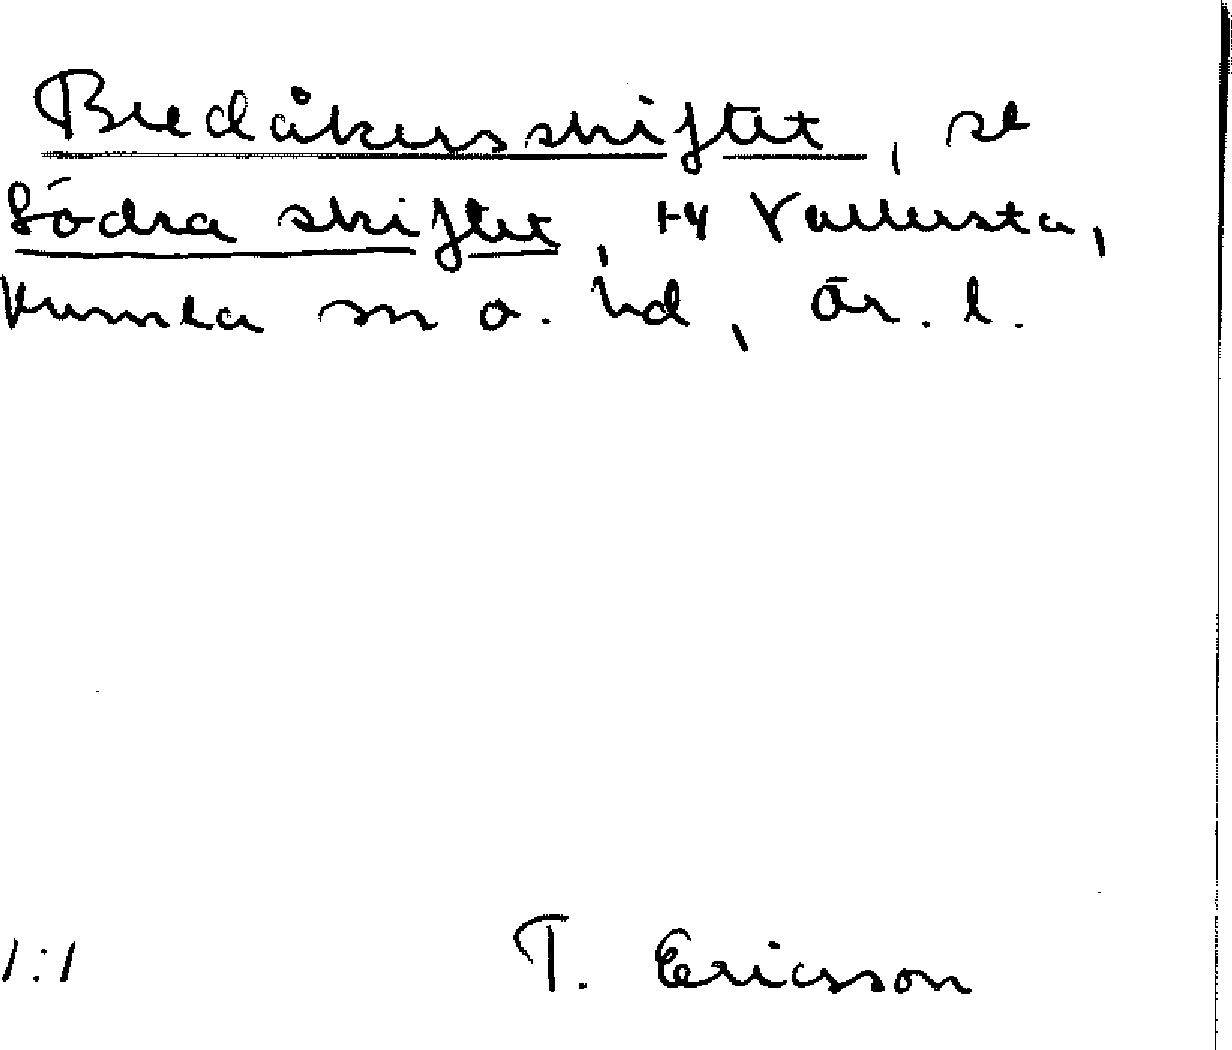 Bredåkersskiftet, se
Södra skiftet, Hy Vallersta,
Kumla sn o. hd, Ör. l.
1:1 T. Ericson